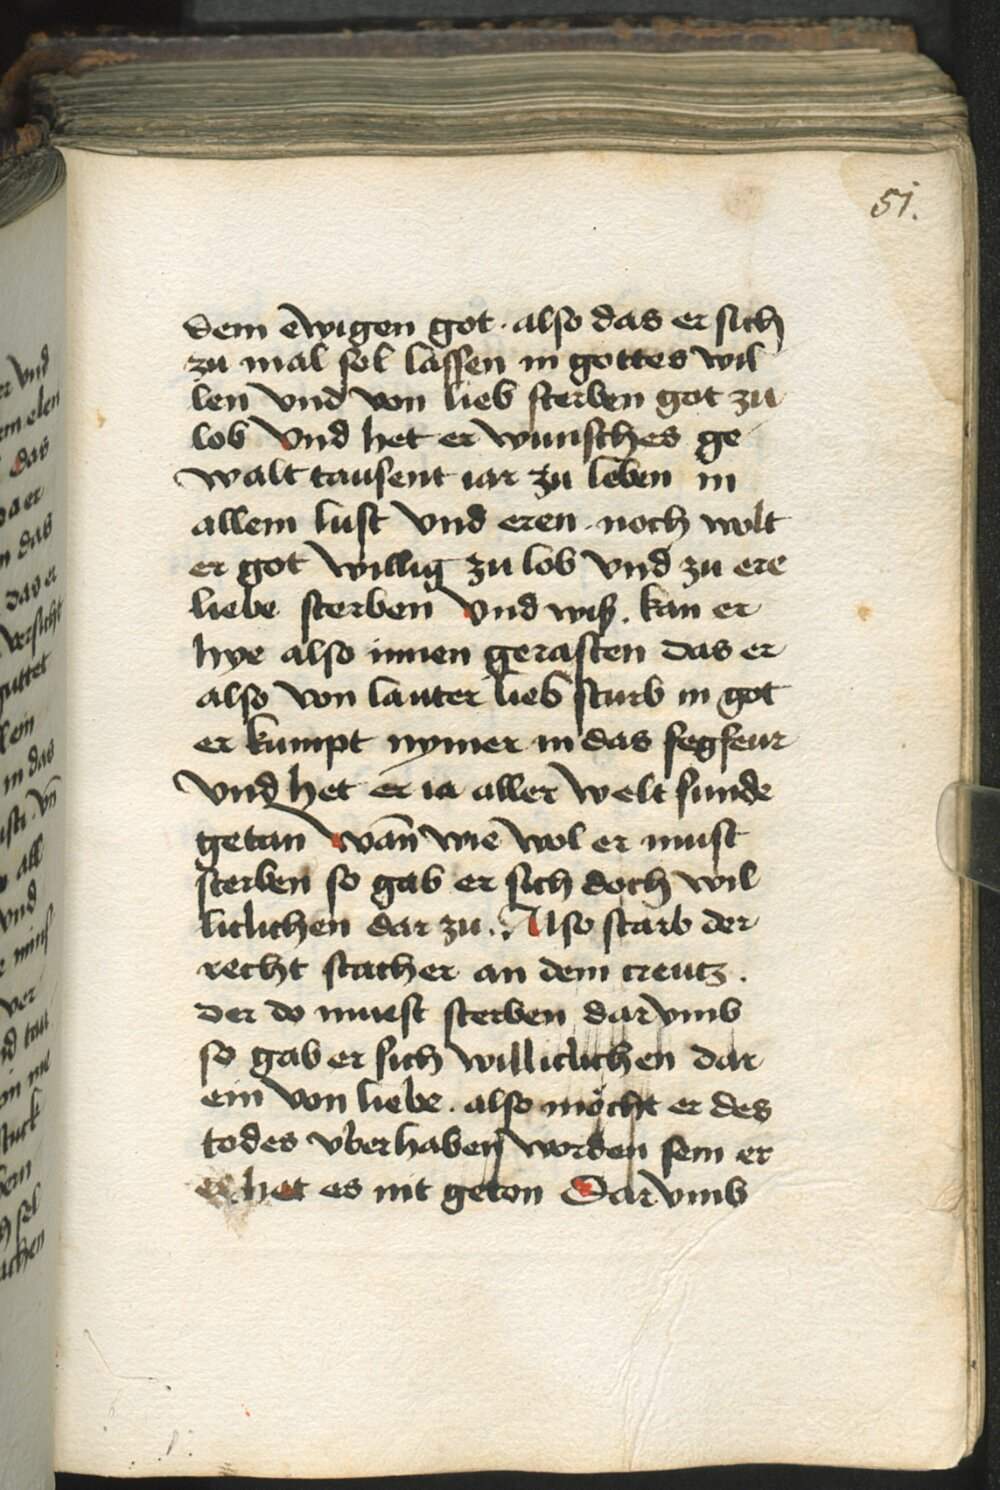 51.
dem ewigen got · also das er sich
zu mal sol lassen in gottes wil
len vnd von lieb sterben got zu
lob vnd het er wunsches ge
walt tausent iar zu leben in
allem lust vnd eren · noch wolt
er got willig zu lob vnd zu ere
liebe sterben vnd wiß . kan er
hye also innen gerasten das er
also von lauter lieb sturb in got
er kumpt nymer in das fegfeur
vnd het er ia aller welt sunde
getan wañ wie wol er must
sterben so gab er sich doch wil
liclichen dar zu . Also starb der
recht schacher an dem creutz .
der do must sterben dar vmb
so gab er sich williclichen dar
ein von liebe . also möcht er des
todes vberhaben worden sein er
het es nit geton Dar vmb